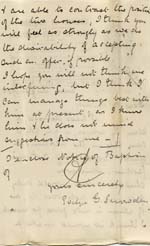 & are able to contrast the position
of the two houses, I think you
will feel as strongly as we do
the desirability of accepting
such an offer, if possible
I hope you will not think me
interfering, but I think I
can manage things best with
him at present, as I know
him & he does not mind
suggestions from me —
I enclose Notice of Baptism
of
Yours sincerely